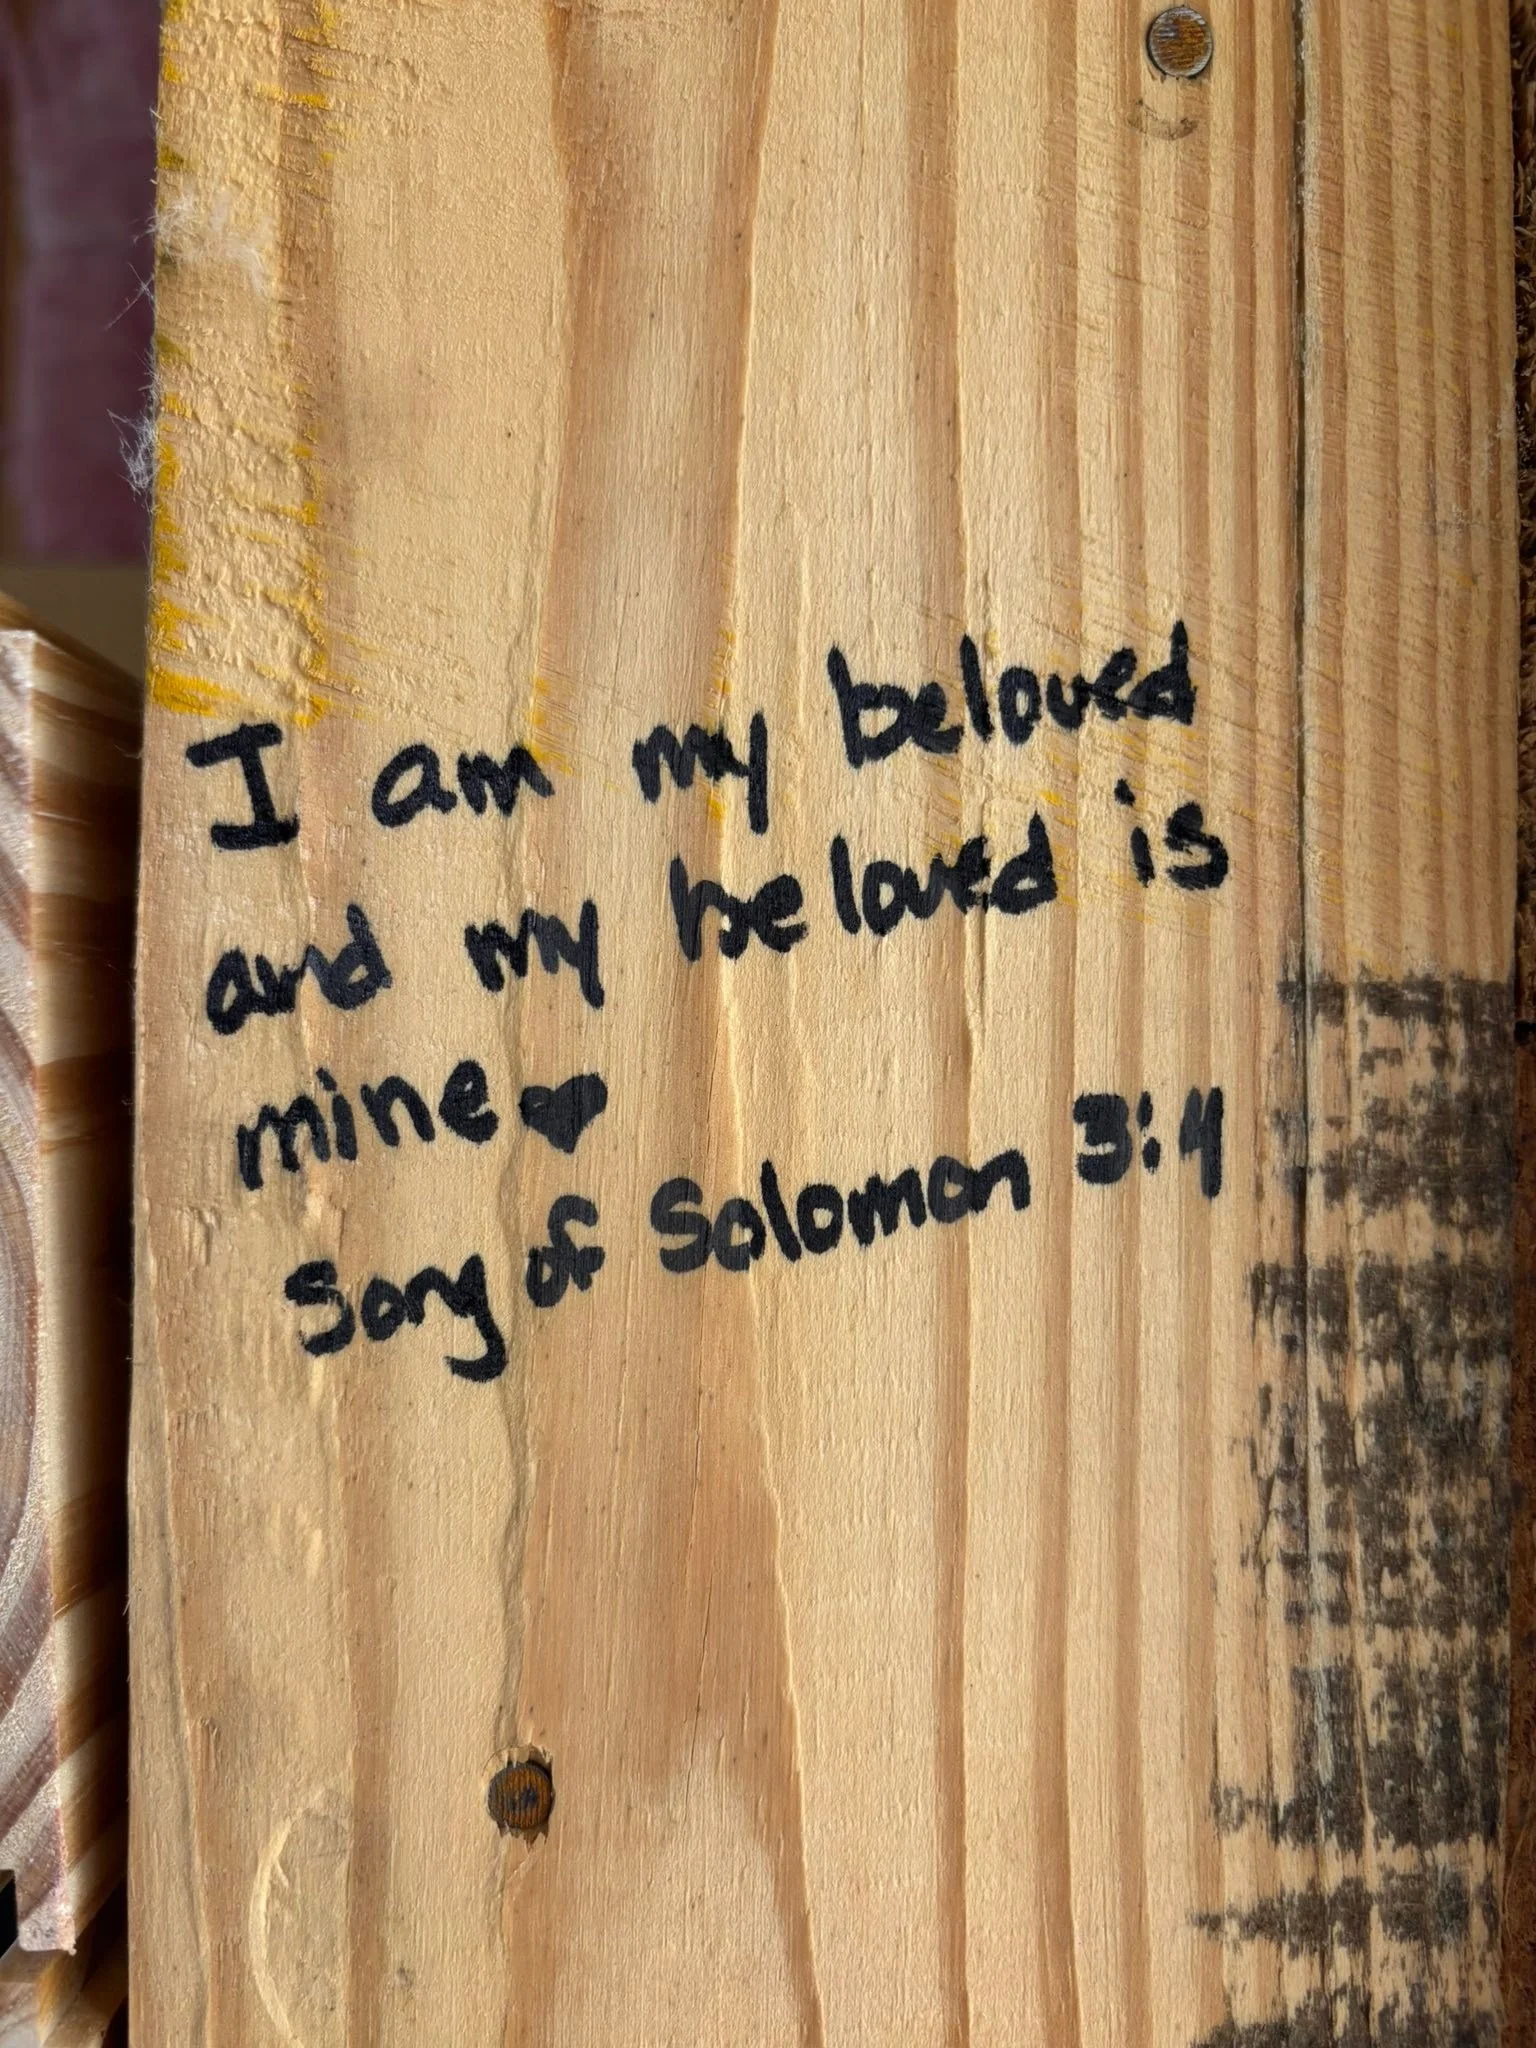 I am my beloved
and my beloved is
mine♥
Song of Solomon 3:4